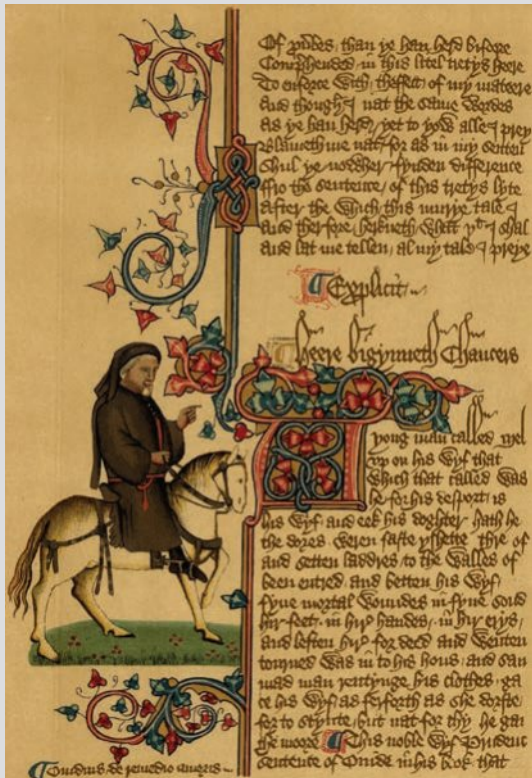 Of prouerbes, than ye han herd bifore
Comprehended in this litel tretys heere
To enforce with, theffect of my mateere
And though I nat the same wordes
as ye han herd, yet to yow alle I preye
Blameth me nat, for as in my sentence
Shul ye nowher fynden difference
ffro the sentence, of this tretys lyte
after the which, this murye tale I
and therfore herkneth, what þt I shal
and lat me tellen, al my tale I preye
Explicit
heere bigynneth Chaucers
yong man called Mel
vp on his wyf that
which that called was
he for his desport is
his wyf and eek his doghter, hath he
the dores weren faste yshette thre of
and setten laddres to the walles of
been entred, and betten his wyf
fyue mortal woundes in fyue sond
hir feet, in hir handes, in hir erys,
and leften hir for deed and wenten
torned was in to his hous, and saugh
mad man rentynge his clothes, ga
ce his wyf as ferforth as she dorste
for to stynte, but nat for thy he gan
the moore This noble wyf Prudence
sentence of Ouide in his book that
Ouidius de remedio amoris